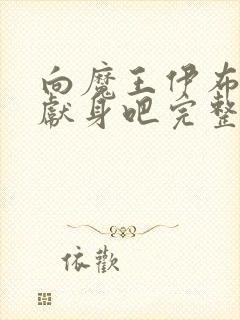 向魔王伊布
献身吧完整
依歡